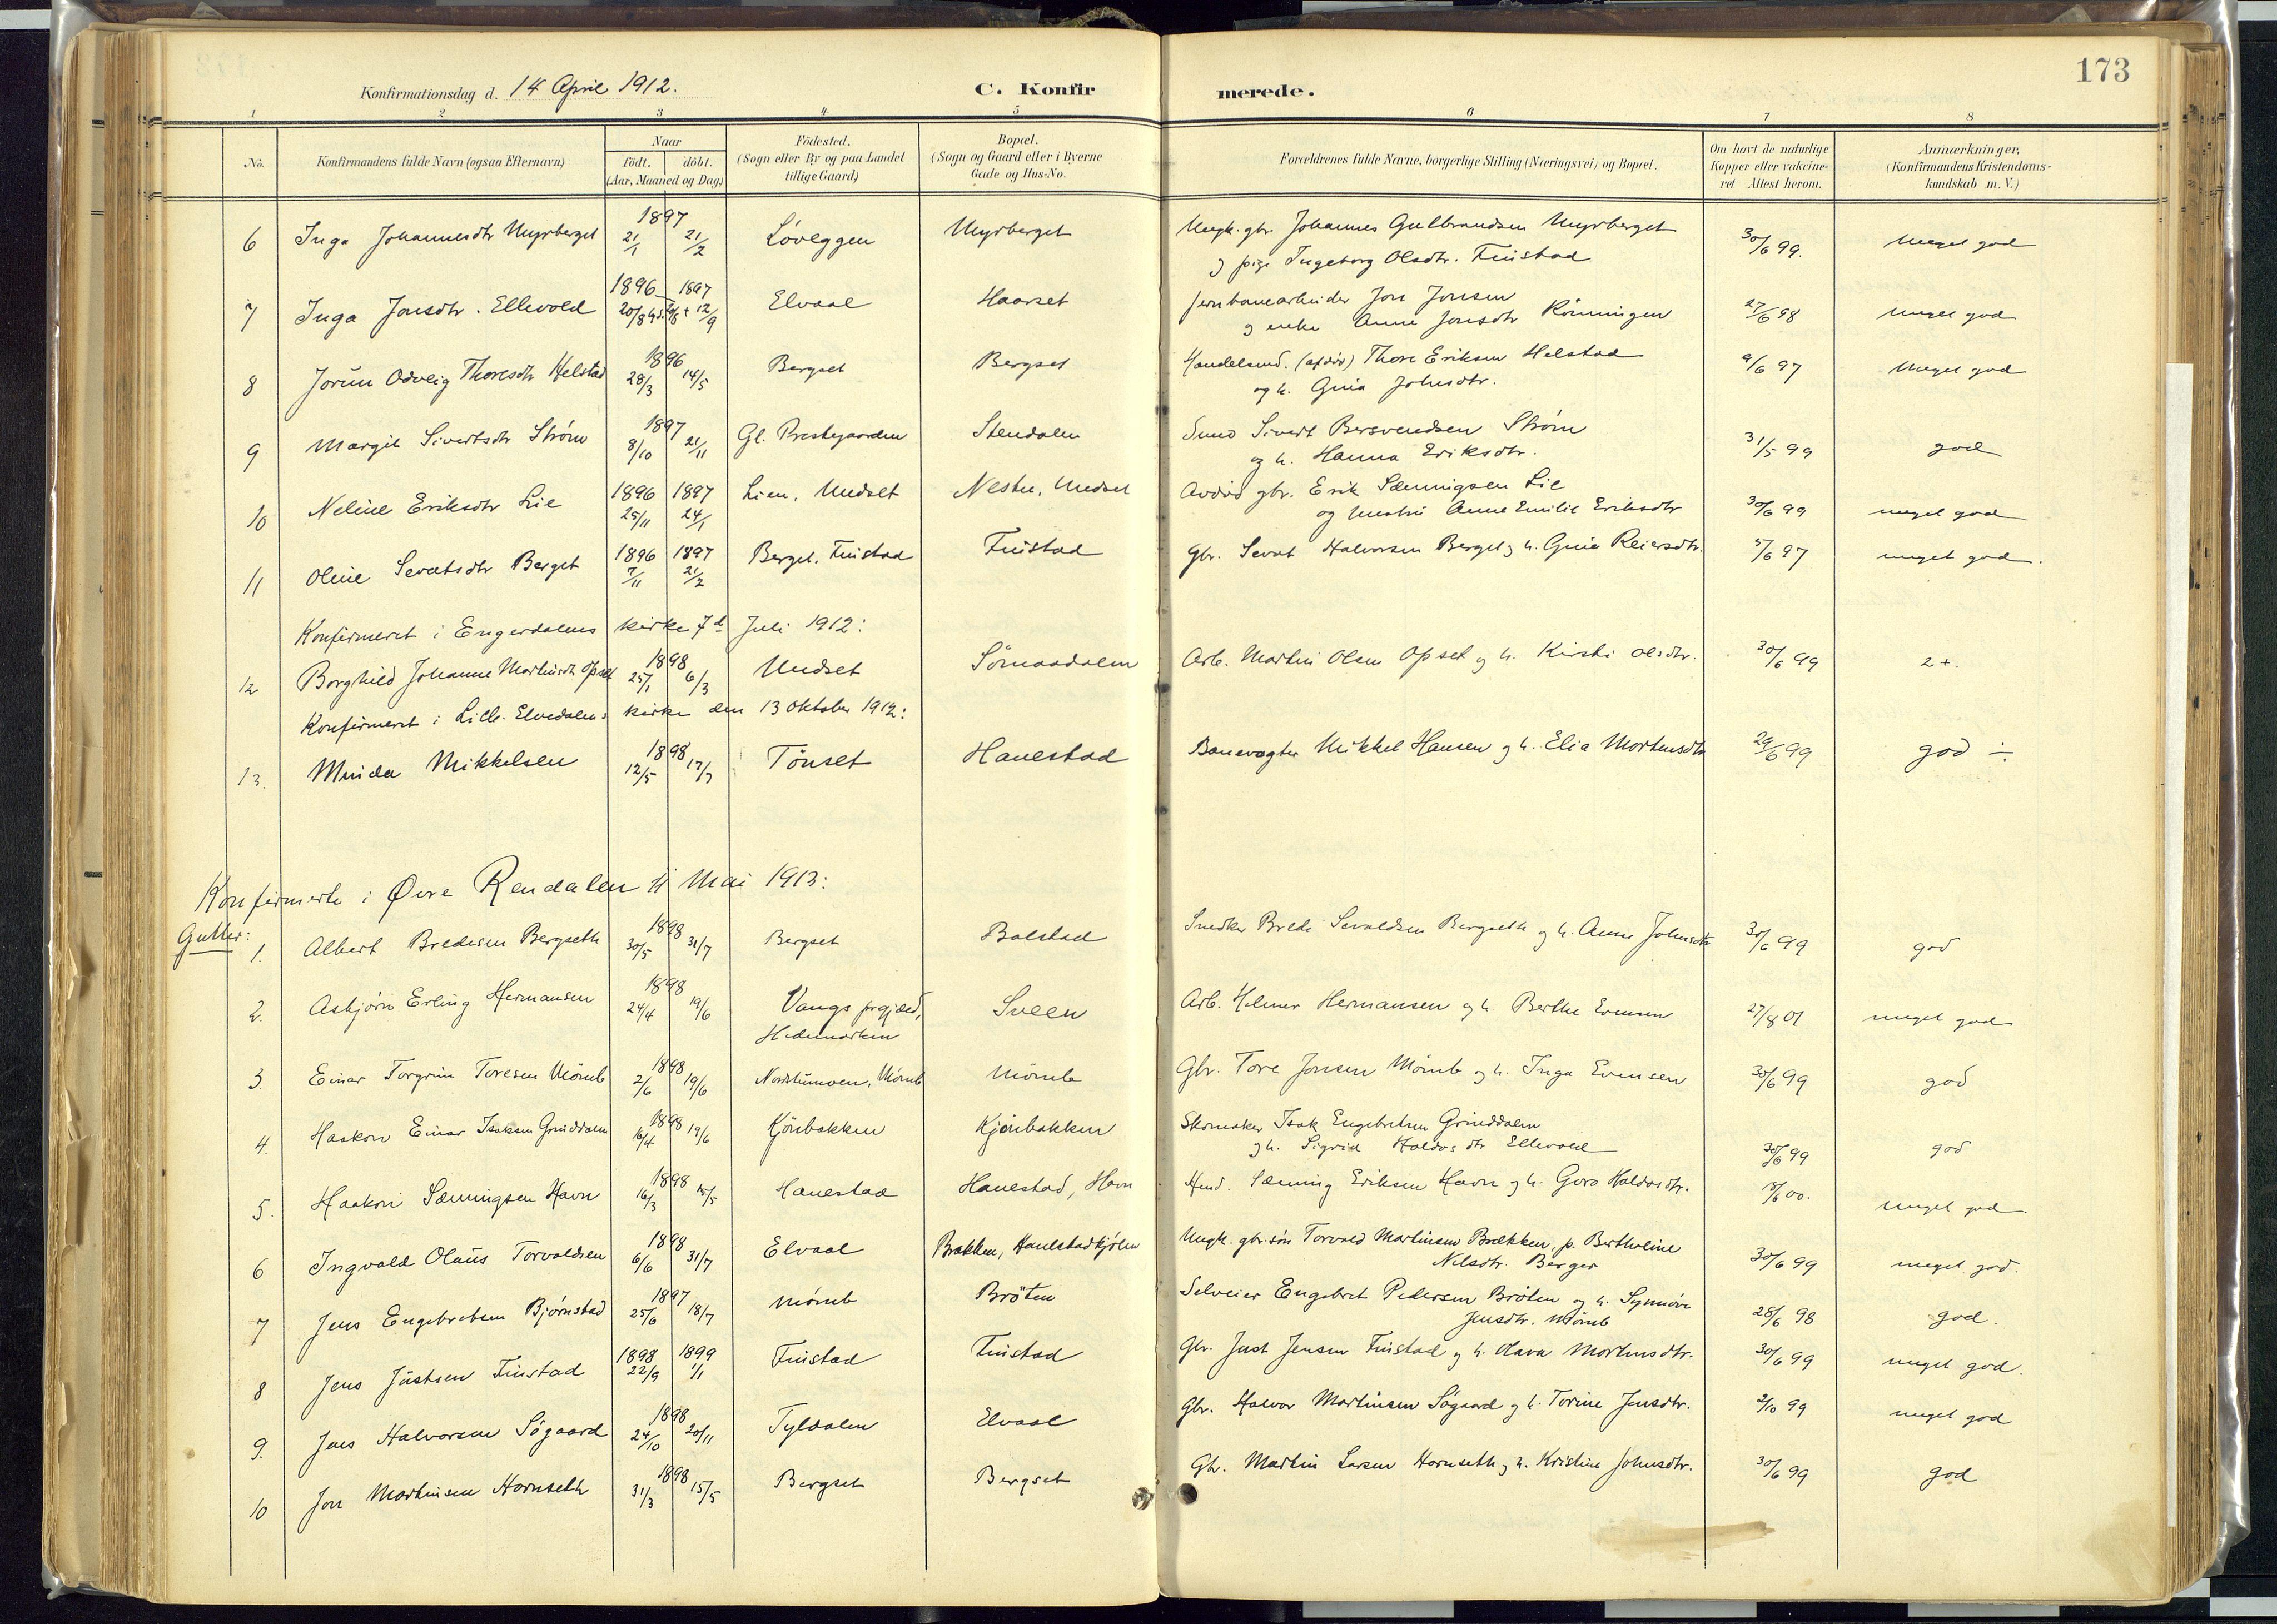 173
Konfirmationsdag d. 14 April 1912. C. Konfirmerede.
1 2 3 4 5 6 7 8
No. Konfirmandens fulde Navn (ogsaa Efternavn) Naar födt. döbt. (Aar, Maaned og Dag) Födested. (Sogn eller By og paa Landet tillige Gaard) Bopæl. (Sogn og Gaard eller i Byerne Gade og Hus-No. Forældrenes fulde Navne, borgerlige Stilling (Næringsvei) og Bopæl. Om havt de naturlige Kopper eller vakcineret Attest herom. Anmærkninger, (Konfirmandens Kristendomskundskab m. V.)
6 Inga Johannesdtr Myrberget 1897 21/1 21/2 Løveggen Myrberget Ungk. gbr. Johannes Gulbrandsen Myrberget 30/6 99. Meget god
og pige Ingeborg Olsdtr. Finstad
7 Inga Jonsdtr. Ellevold 1896 1897 20/8 12/9 Elvaal Haarset Jernbanearbeider Jon Jonsen 27/6 98 meget god
og enke Anne Jonsdtr Rönningen
8 Jorün Odveig Thoresdtr Helstad 1896 28/3 14/5 Bergset Bergset Handelsmd. (afdöd) Thore Eriksen Helstad 9/6 97 Meget god
og h. Gina Johnsdtr.
9 Margit Sivertsdtr Strøm 1897 8/10 21/11 Gl. Prestegaarden Stendalen Smed Sivert Bersvendsen Strøm 31/5 99 god
og h. Hanna Eriksdtr.
10 Neline Eriksdtr Lie 1896 1897 25/11 24/1 Lien, Undset Nesten, Undset Avdöd gbr. Erik Sæmingsen Lie 30/6 99 meget god
og hustru Anne Emilie Eriksdtr
11 Oline Sevatsdtr Berget 1896 1897 7/11 21/2 Berget, Finstad Finstad Gbr. Sevat Halvorsen Berget og h. Gina Reiersdtr. 5/6 97 meget god.
Konfirmeret i Engerdalens kirke 7d Juli 1912:
12 Borghild Johanne Martinsdtr Opset 1898 25/1 6/3 Undset Sömaadalen Arb. Martin Olsen Opset og h. Kirsti Olsdtr. 30/6 99 2+.
Konfirmeret i Lille-Elvedalens kirke den 13 Oktober 1912:
13. Minda Mikkelsen 1898 12/5 17/7 Tönset Hanestad Banevogter Mikkel Hansen og h. Elia Mortensdtr 29/6 99 god ÷
Konfirmerte i Øvre Rendalen 11 Mai 1913:
Gutter:
1. Albert Bredesen Bergseth 1898 30/5 31/7 Bergset Bolstad Snedker Brede Sevaldsen Bergseth og h. Anne Johnsdtr 30/6 99 god
2. Asbjørn Erling Hermansen 1898 24/4 19/6 Vangs prgjæld, Hedemarken Sveen Arb. Helmer Hermansen og h Berthe Evensen 27/8 01 meget god
3. Einar Torgrim Toresen Mömb 1898 2/6 19/6 Nordstumoen, Mömb Mömb Gbr. Tore Jonsen Mömb og h. Inga Evensen 30/6 99 god
4. Haakon Einar Isaksen Grinddalen 1898 16/4 19/6 Kjönbakken Kjönbakken Skomaker Isak Engebretsen Grinddalen 30/6 99 god
og h. Sigrid Haldosdtr Ellevold
5. Haakon Sæmingsen Havn 1898 16/3 15/5 Hanestad Hanestad, Havn Hmd. Sæming Eriksen Havn og h. Guro Haldosdtr. 18/6 00. meget god.
6 Ingvald Olaüs Torvaldsen 1898 6/6 31/7 Elvaal Brækken, Hanestadkjölen Ungk. gbr.sön Torvald Martinsen Brækken, p. Bertheline 30/6 99 meget god.
Nilsdtr. Berger
7 Jens Engebretsen Bjørnstad 1897 25/6 18/7 Mömb Bröten Selveier Engebret Pedersen Bröten og h. Synnöve 28/6 98 god.
Jensdtr. Mömb
8 Jens Jüstsen Finstad 1898 1899 22/9 1/1 Finstad Finstad Gbr. Just Jensen Finstad og h. Olava Mortensdtr. 30/6 99 meget god.
9. Jens Halvorsen Sögaard 1898 24/10 20/11 Tyldalen Elvaal Gbr. Halvor Martinsen Sögaard og h. Torine Jensdtr. 2/10 99 meget god
10 Jon Martinsen Hornseth 1898 31/3 15/5 Bergset Bergset Gbr. Martin Larsen Hornseth og h. Kristine Johnsdtr. 30/6 99 god